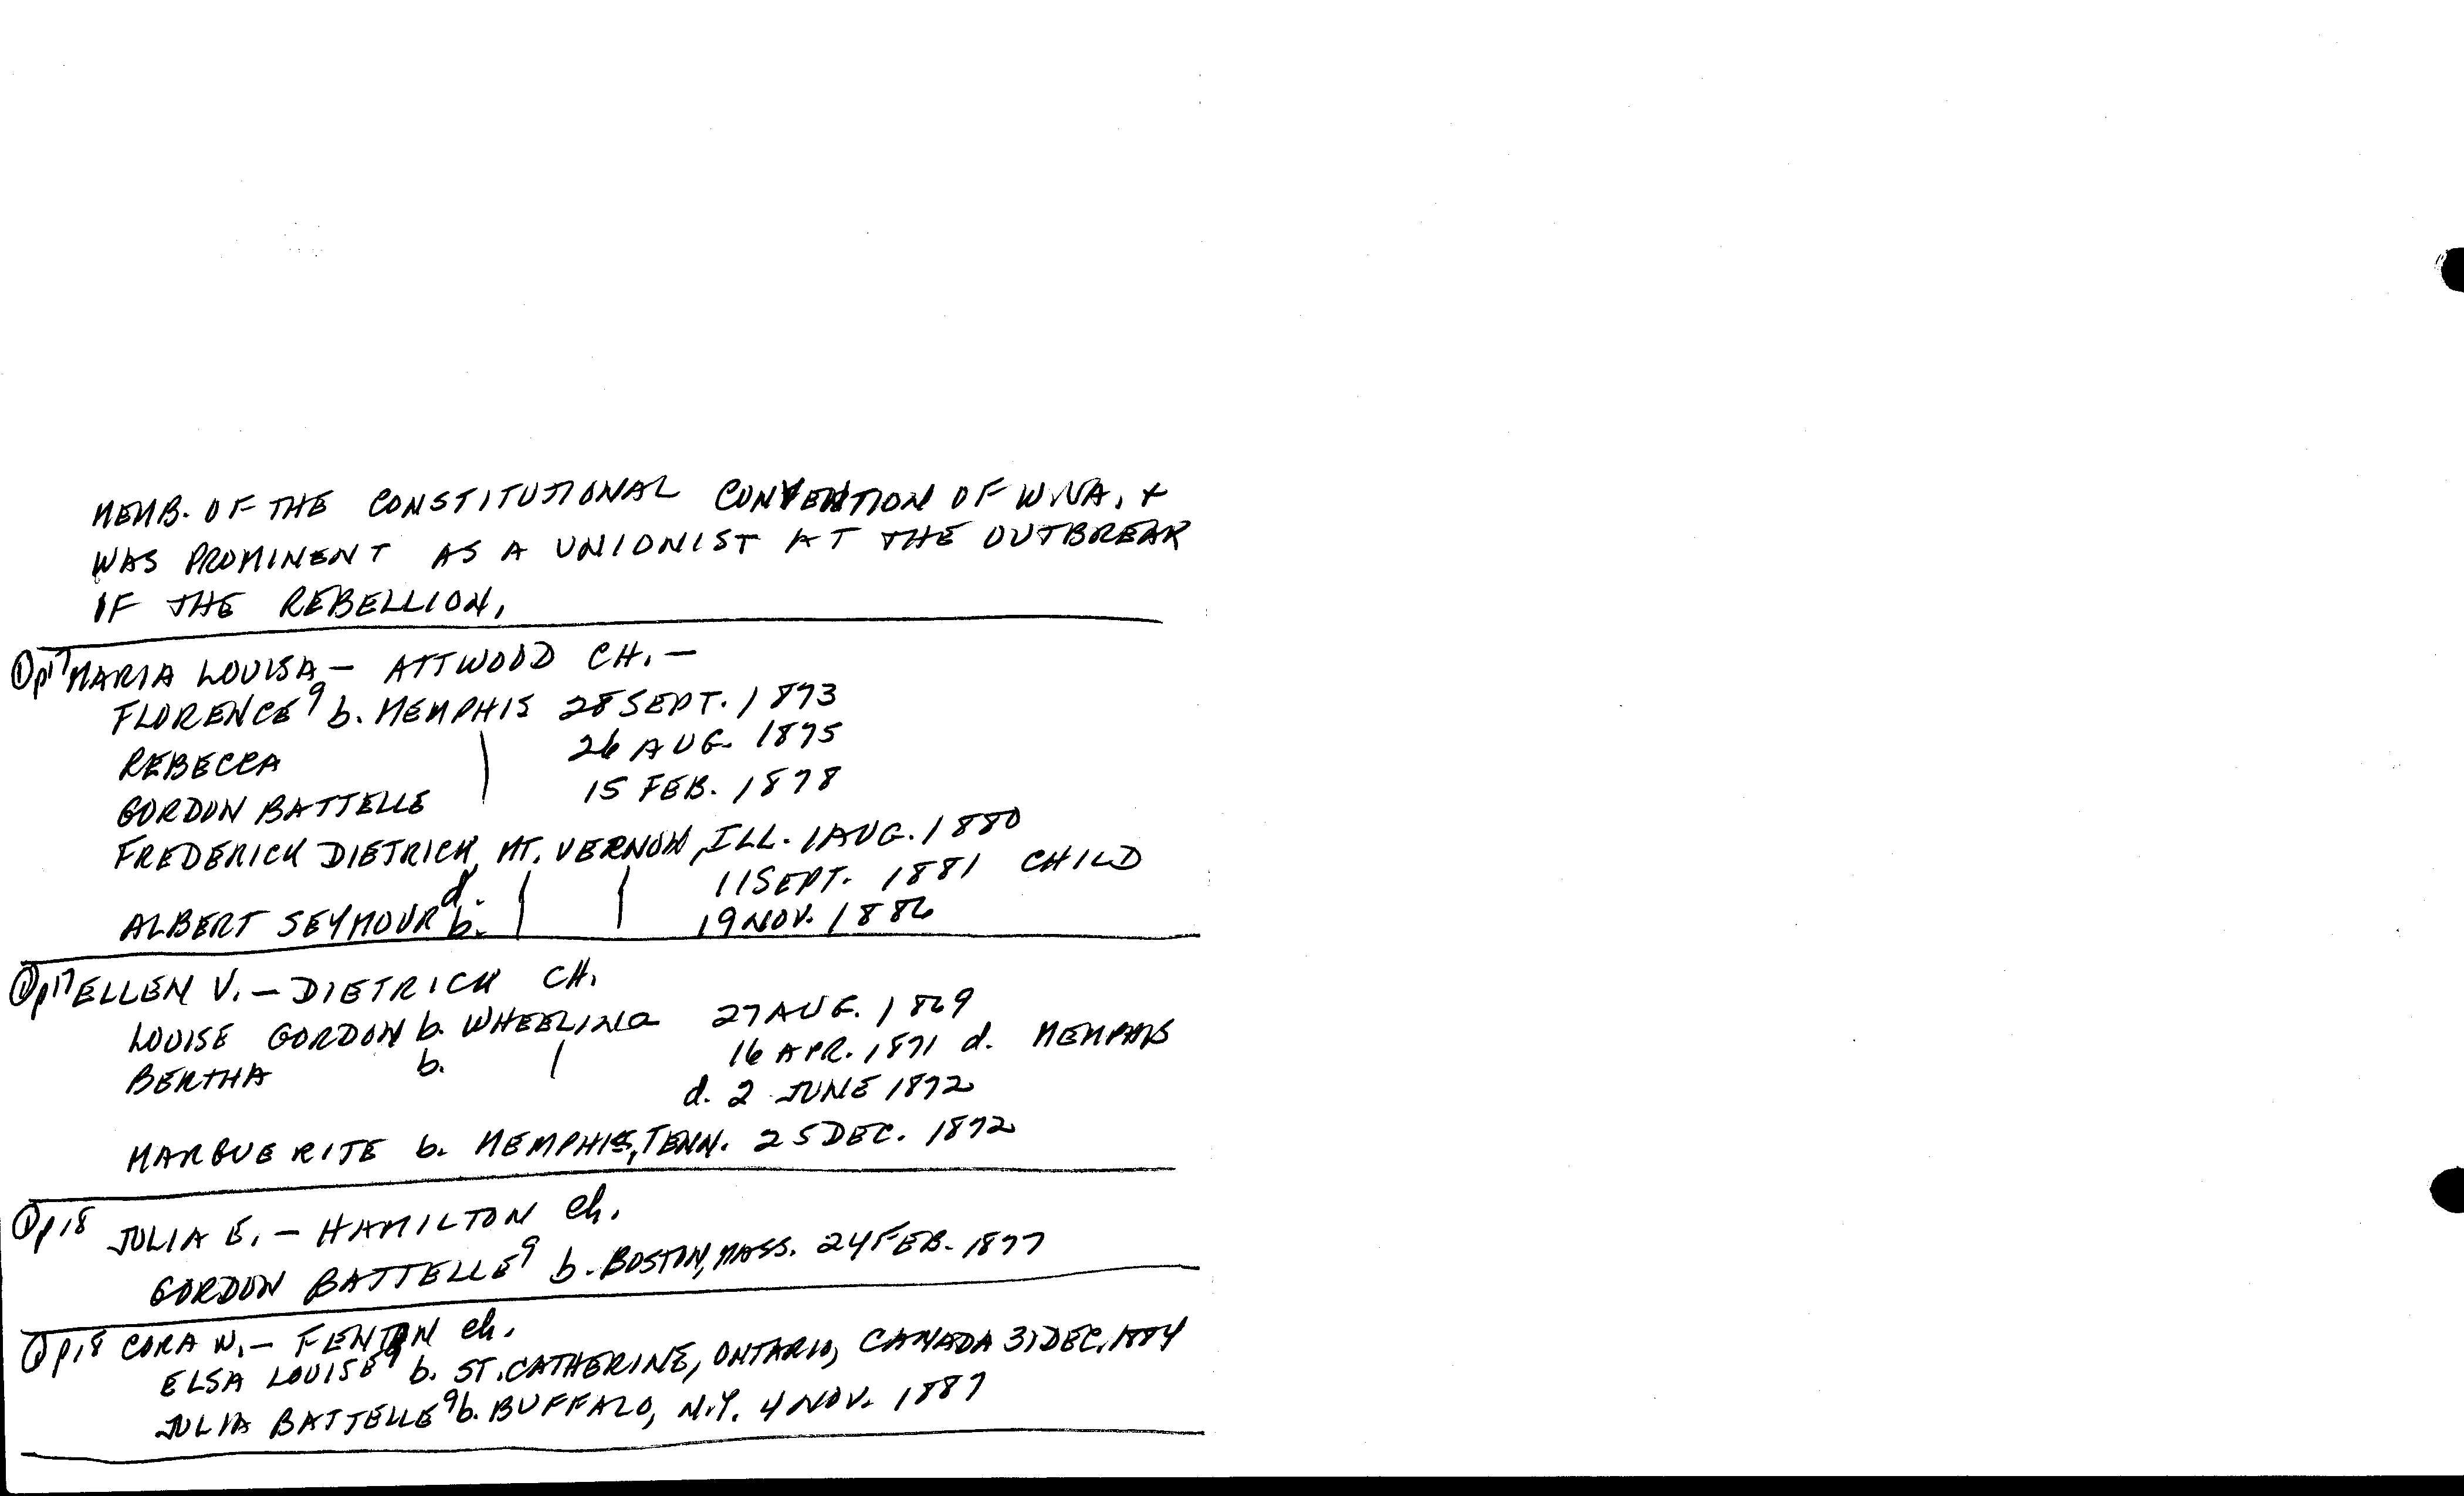 MEMB. OF THE CONSTITUTIONAL CONVENTION OF W.VA. +
WAS PROMINENT AS A UNIONIST AT THE OUTBREAK
IF THE REBELLION,
① p17 MARIA LOUISA - ATTWOOD CH. -
FLORENCE⁹ b. MEMPHIS 28 SEPT. 1873
REBECCA | 26 AUG. 1875
GORDON BATTELLE | 15 FEB. 1878
FREDERICK DIETRICH, MT. VERNON, ILL. 1 AUG. 1880
d. | | 11 SEPT. 1881 CHILD
ALBERT SEYMOUR b. | | 19 NOV. 1886
① p17 ELLEN V. - DIETRICH CH.
LOUISE GORDON b. WHEELING 27 AUG. 1869
BERTHA b. | 16 APR. 1871 d. MEMPHIS
d. 2 JUNE 1872
MARGUERITE b. MEMPHIS, TENN. 25 DEC. 1872
① p18 JULIA E. - HAMILTON ch.
GORDON BATTELLE⁹ b. BOSTON, MASS. 24 FEB. 1877
① p18 CORA N. - FENTON ch.
ELSA LOUISE⁹ b. ST. CATHERINE, ONTARIO, CANADA 31 DEC. 1884
JULIA BATTELLE⁹ b. BUFFALO, N.Y. 4 NOV. 1887